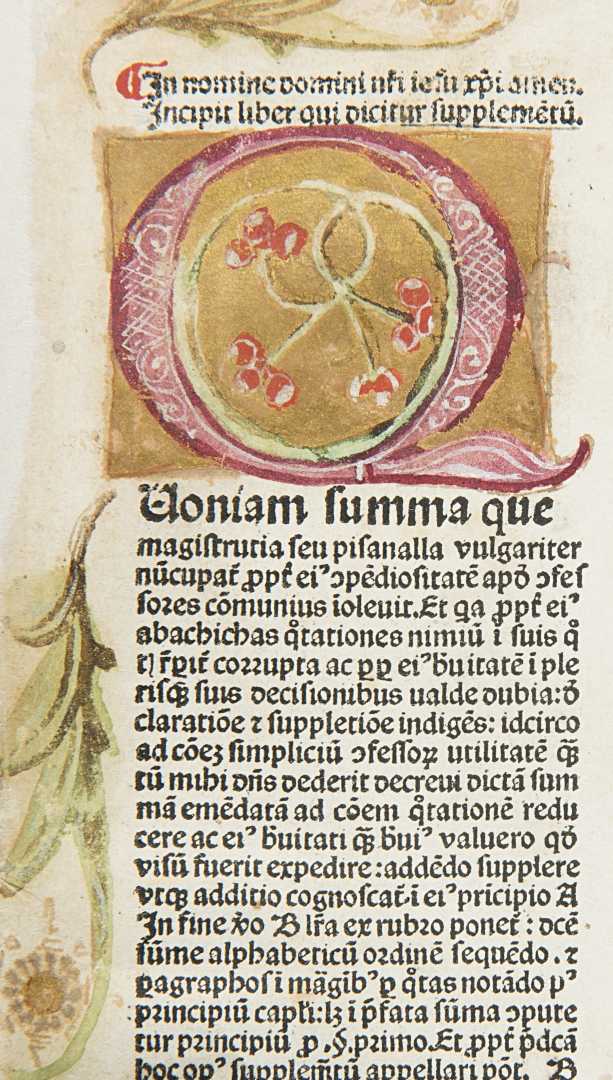 In nomine domini nr̄i iesu xp̄i amen.
Incipit liber qui dicitur supplemētū.
QUoniam summa que
magistrutia seu pisanalla vulgariter
nūcupat̄ ꝓpt̄ eiꝰ ↄpēdiositatē apđ ↄfes
sores cōmunius īoleuit. Et qa ꝓpt̄ eiꝰ
abachichas q̊tationes nimiū ī suis q̊
corrupta ac ꝑꝑ eiꝰ b̄uitatē ī ple
risqꝫ suis decisionibus ualde dubia: đ
claratiōe ⁊ suppletiōe indigēs: idcirco
ad cōeꝫ simpliciū ↄfessoꝝ utilitatē qꝫ̄
tū mihi dn̄s dederit decreui dictā sum
mā emēdatā ad cōem q̊tationē redu
cere ac eiꝰ b̄uitati qꝫ̄ b̄uiꝰ valuero qđ
visū fuerit expedire: addēdo supplere
vtqꝫ additio cognoscat̄ i eiꝰ pricipio A
In fine ꝟo B lr̄a ex rubro ponet̄: dcē
sūme alphabeticū ordinē sequēdo. ⁊
ꝑagraphos i māgibꝰ ꝑ q̊tas notādo pꝰ
principiū capl̄i: lꝫ i p̄fata sūma ↄpute
tur principiū ꝓ .§. primo. Et ꝓpt̄ p̄dcā
hoc opꝰ supplem̄tū appellari pōt. B